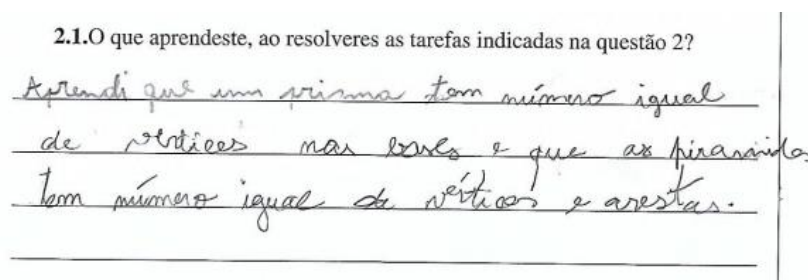 2.1.O que aprendeste, ao resolveres as tarefas indicadas na questão 2?
Aprendi que um prisma tem número igual
de vértices nas bases e que as piramides
tem número igual de vérticos e arestas.